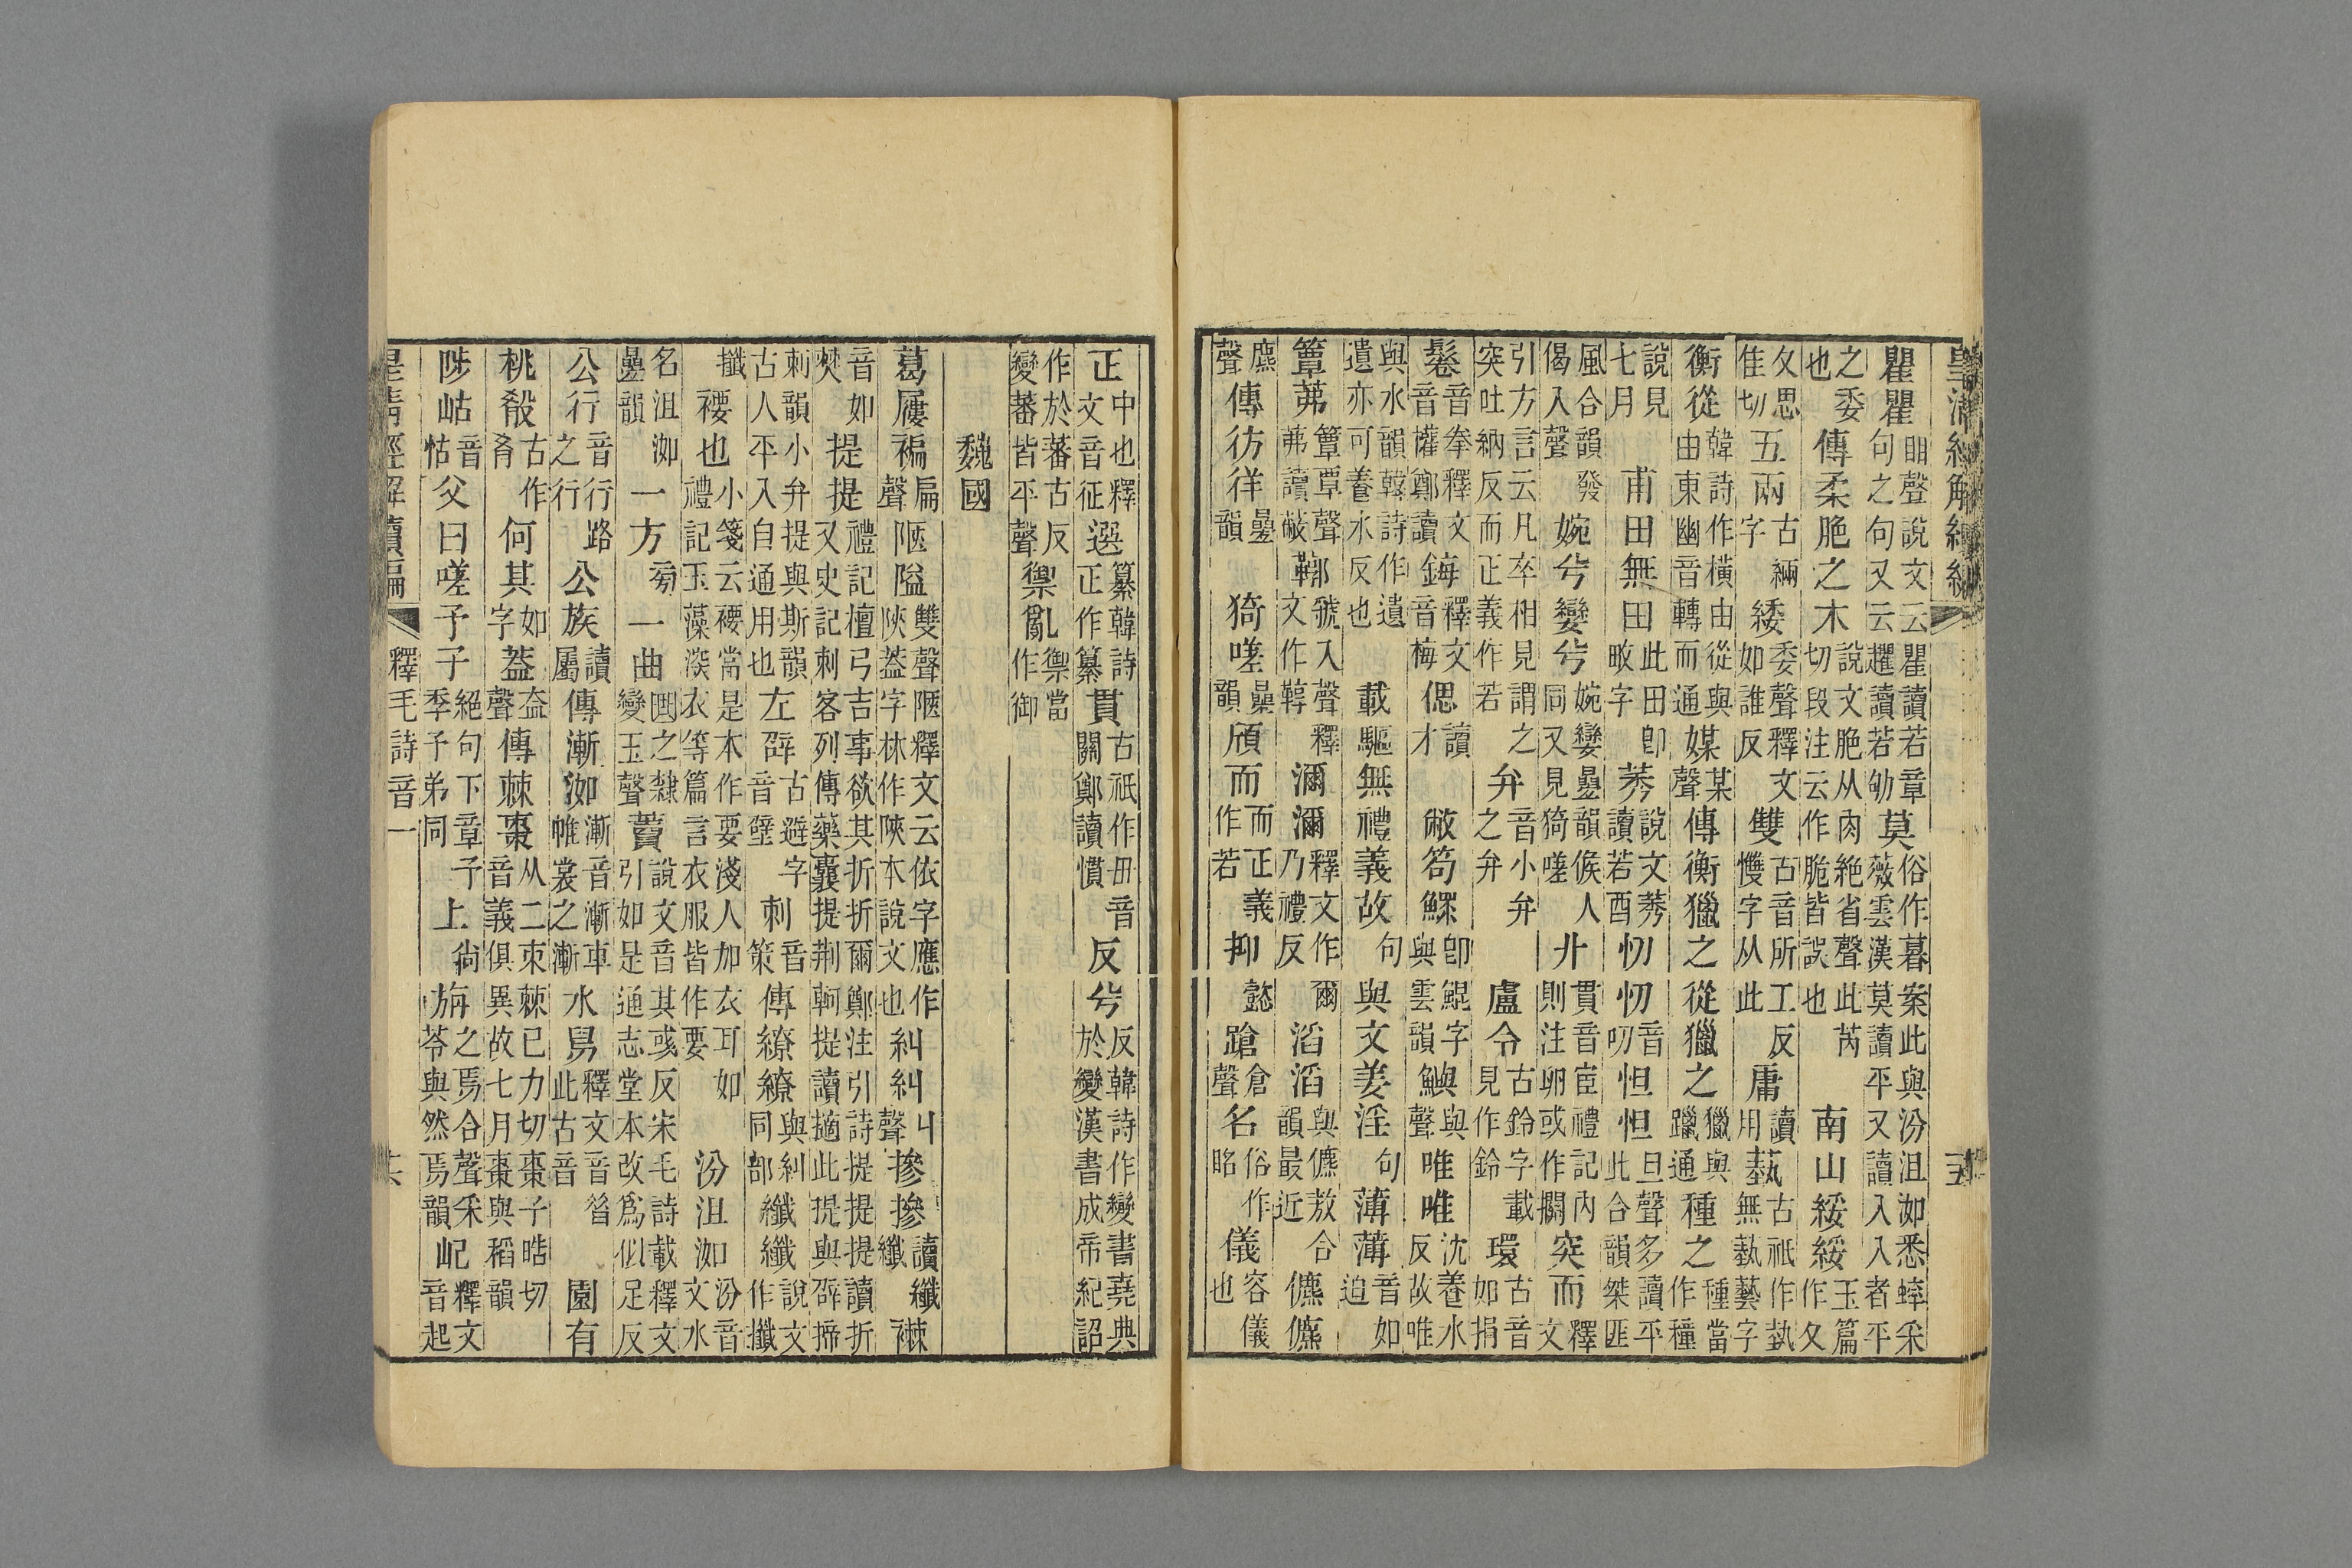 皇清經解續編
瞿瞿䀠聲說文云瞿讀若章句之句又云趯讀若劬莫俗作暮案此與汾沮洳悉蟀采薇雲漢莫讀平又讀入入者平
之委也傳柔脃之木說文脃从肉絕省聲此芮切段注云作脆皆誤也南山綏綏玉篇作夂
夂思隹切五兩古緉字緌委聲釋文如誰反雙古音所工反慅字从此庸讀用蓺古祇作埶無蓺藝字
衡從韓詩作橫由從與由東幽音轉而通媒某聲傳衡獵之從獵之獵與躐通種之種當作種
說見七月甫田無田此田卽畋字莠說文莠讀若酉忉忉音叨怛怛旦聲多讀平此合韻桀匪
風合韻發偈入聲婉兮孌兮婉孌曡韻候人同又見猗嗟丱貫音宦禮記內則注卵或作攌突而釋文
引方言云凡卒相見謂之突吐納反而正義作若弁音小弁之弁盧令古鈴字載見作鈴環古音如捐
鬈音拳釋文音權鄭讀鋂釋文音梅偲讀才敝笱鰥卽鯤字與雲韻鱮與聲唯唯沈養水反故唯
與水韻韓詩作遺遺亦可養水反也載驅無禮義故句與文姜淫句薄薄音如迫
簟茀簟覃聲茀讀蔽鞹虢入聲釋文作鞟濔濔釋文作爾乃禮反滔滔與儦敖合韻最近儦儦
麃聲傳彷徉曡韻猗嗟曡韻頎而而正義作若抑懿蹌倉聲名俗作眳儀容儀也
正中也釋文音征選纂韓詩正作纂貫古祇作毌音關鄭讀慣反兮反韓詩作變書堯典於變漢書成帝紀詔
作於蕃古反變蕃皆平聲禦亂禦當作御
魏國
葛屨褊扁聲陿隘雙聲陿釋文云依字應作陜葢字林作陜本說文也糾糾丩聲摻摻讀纖纖襋
音如棘提提禮記檀弓吉事欲其折折爾鄭注引詩提提讀折又史記刺客列傳藥囊提荆軻提讀擿此提與辟揥
刺韻小弁提與斯韻古人平入自通用也左辟古避字音壁刺音策傳繚繚與糾同部纖纖說文作攕
攕褄也小箋云褄當是本作要淺人加衣耳如禮記玉藻深衣等篇言衣服皆作要汾沮洳汾音文水
名沮洳曡韻一方㫄一曲圆之隸變玉聲藚說文音其彧反宋毛詩載釋文引如是通志堂本改爲似足反
公行音行路之行公族讀屬傳漸洳漸音漸車帷裳之漸水舄釋文音昝此古音園有
桃殽古作肴何其如字葢盍聲傳棘棗从二朿棘已力切棗子晧切音義俱異故七月棗與稻韻
陟岵音怙父曰嗟予子絕句下章季子弟同子上尙旃之焉合聲采苓與然焉韻屺釋文音起
皇清經解續編
釋毛詩音一